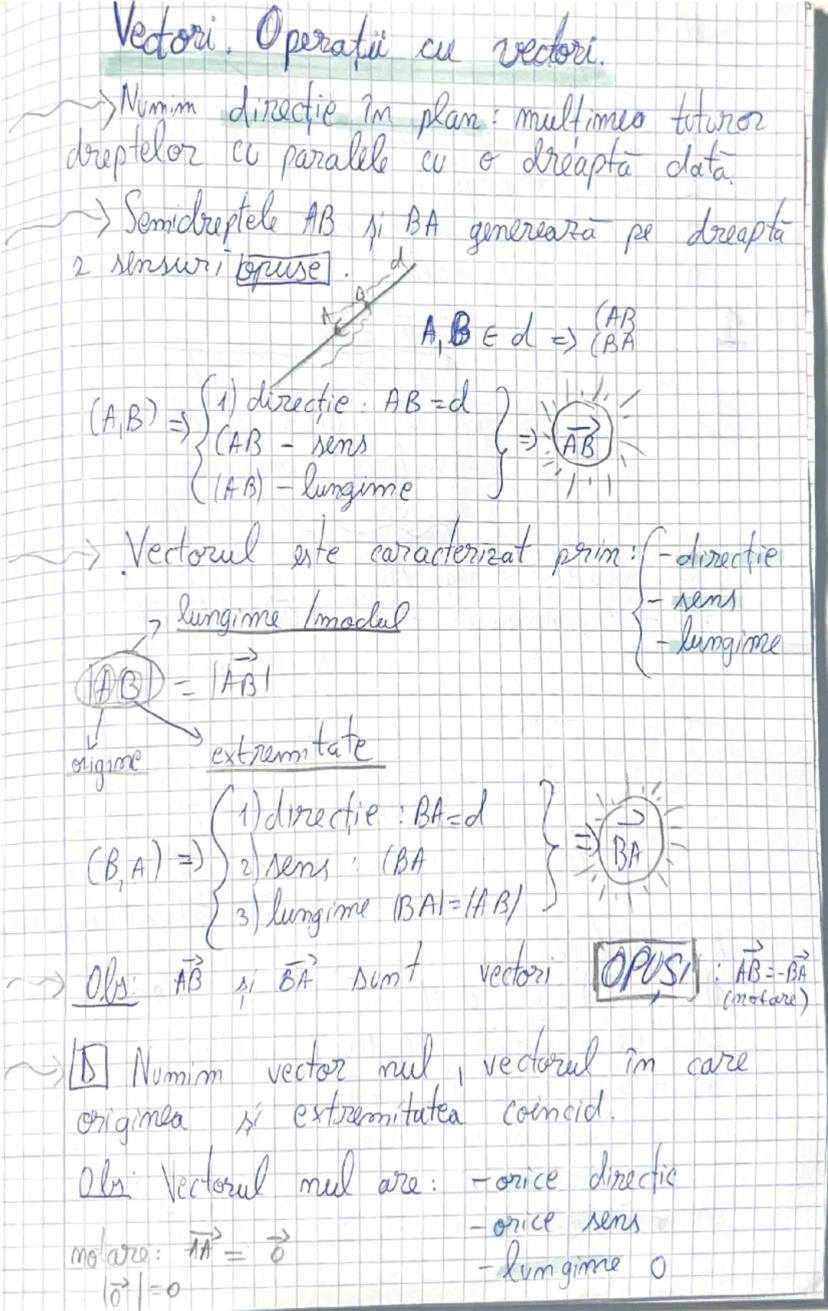 Vectori. Operații cu vectori.
Numim direcție în plan: mulțimea tuturor
dreptelor cu paralele cu o dreaptă dată.
Semidreptele AB și BA generează pe dreaptă
2 sensuri opuse.
d
B
A
A, B ∈ d => (AB
(BA
(A,B) => { 1) direcție: AB = d
(AB - sens
(AB) - lungime
} => AB⃗
Vectorul este caracterizat prin: { - direcție
- sens
- lungime
lungime /modul
|AB| = |AB⃗|
origine
extremitate
(B,A) => { 1) direcție: BA = d
2) sens: (BA
3) lungime |BA| = |AB|
} => BA⃗
Obs: AB⃗ și BA⃗ sunt vectori OPUȘI: AB⃗ = -BA⃗
(notare)
D Numim vector nul, vectorul în care
originea și extremitatea coincid.
Obs: Vectorul nul are: - orice direcție
- orice sens
- lungime 0
notare: AA⃗ = 0⃗
|0⃗| = 0